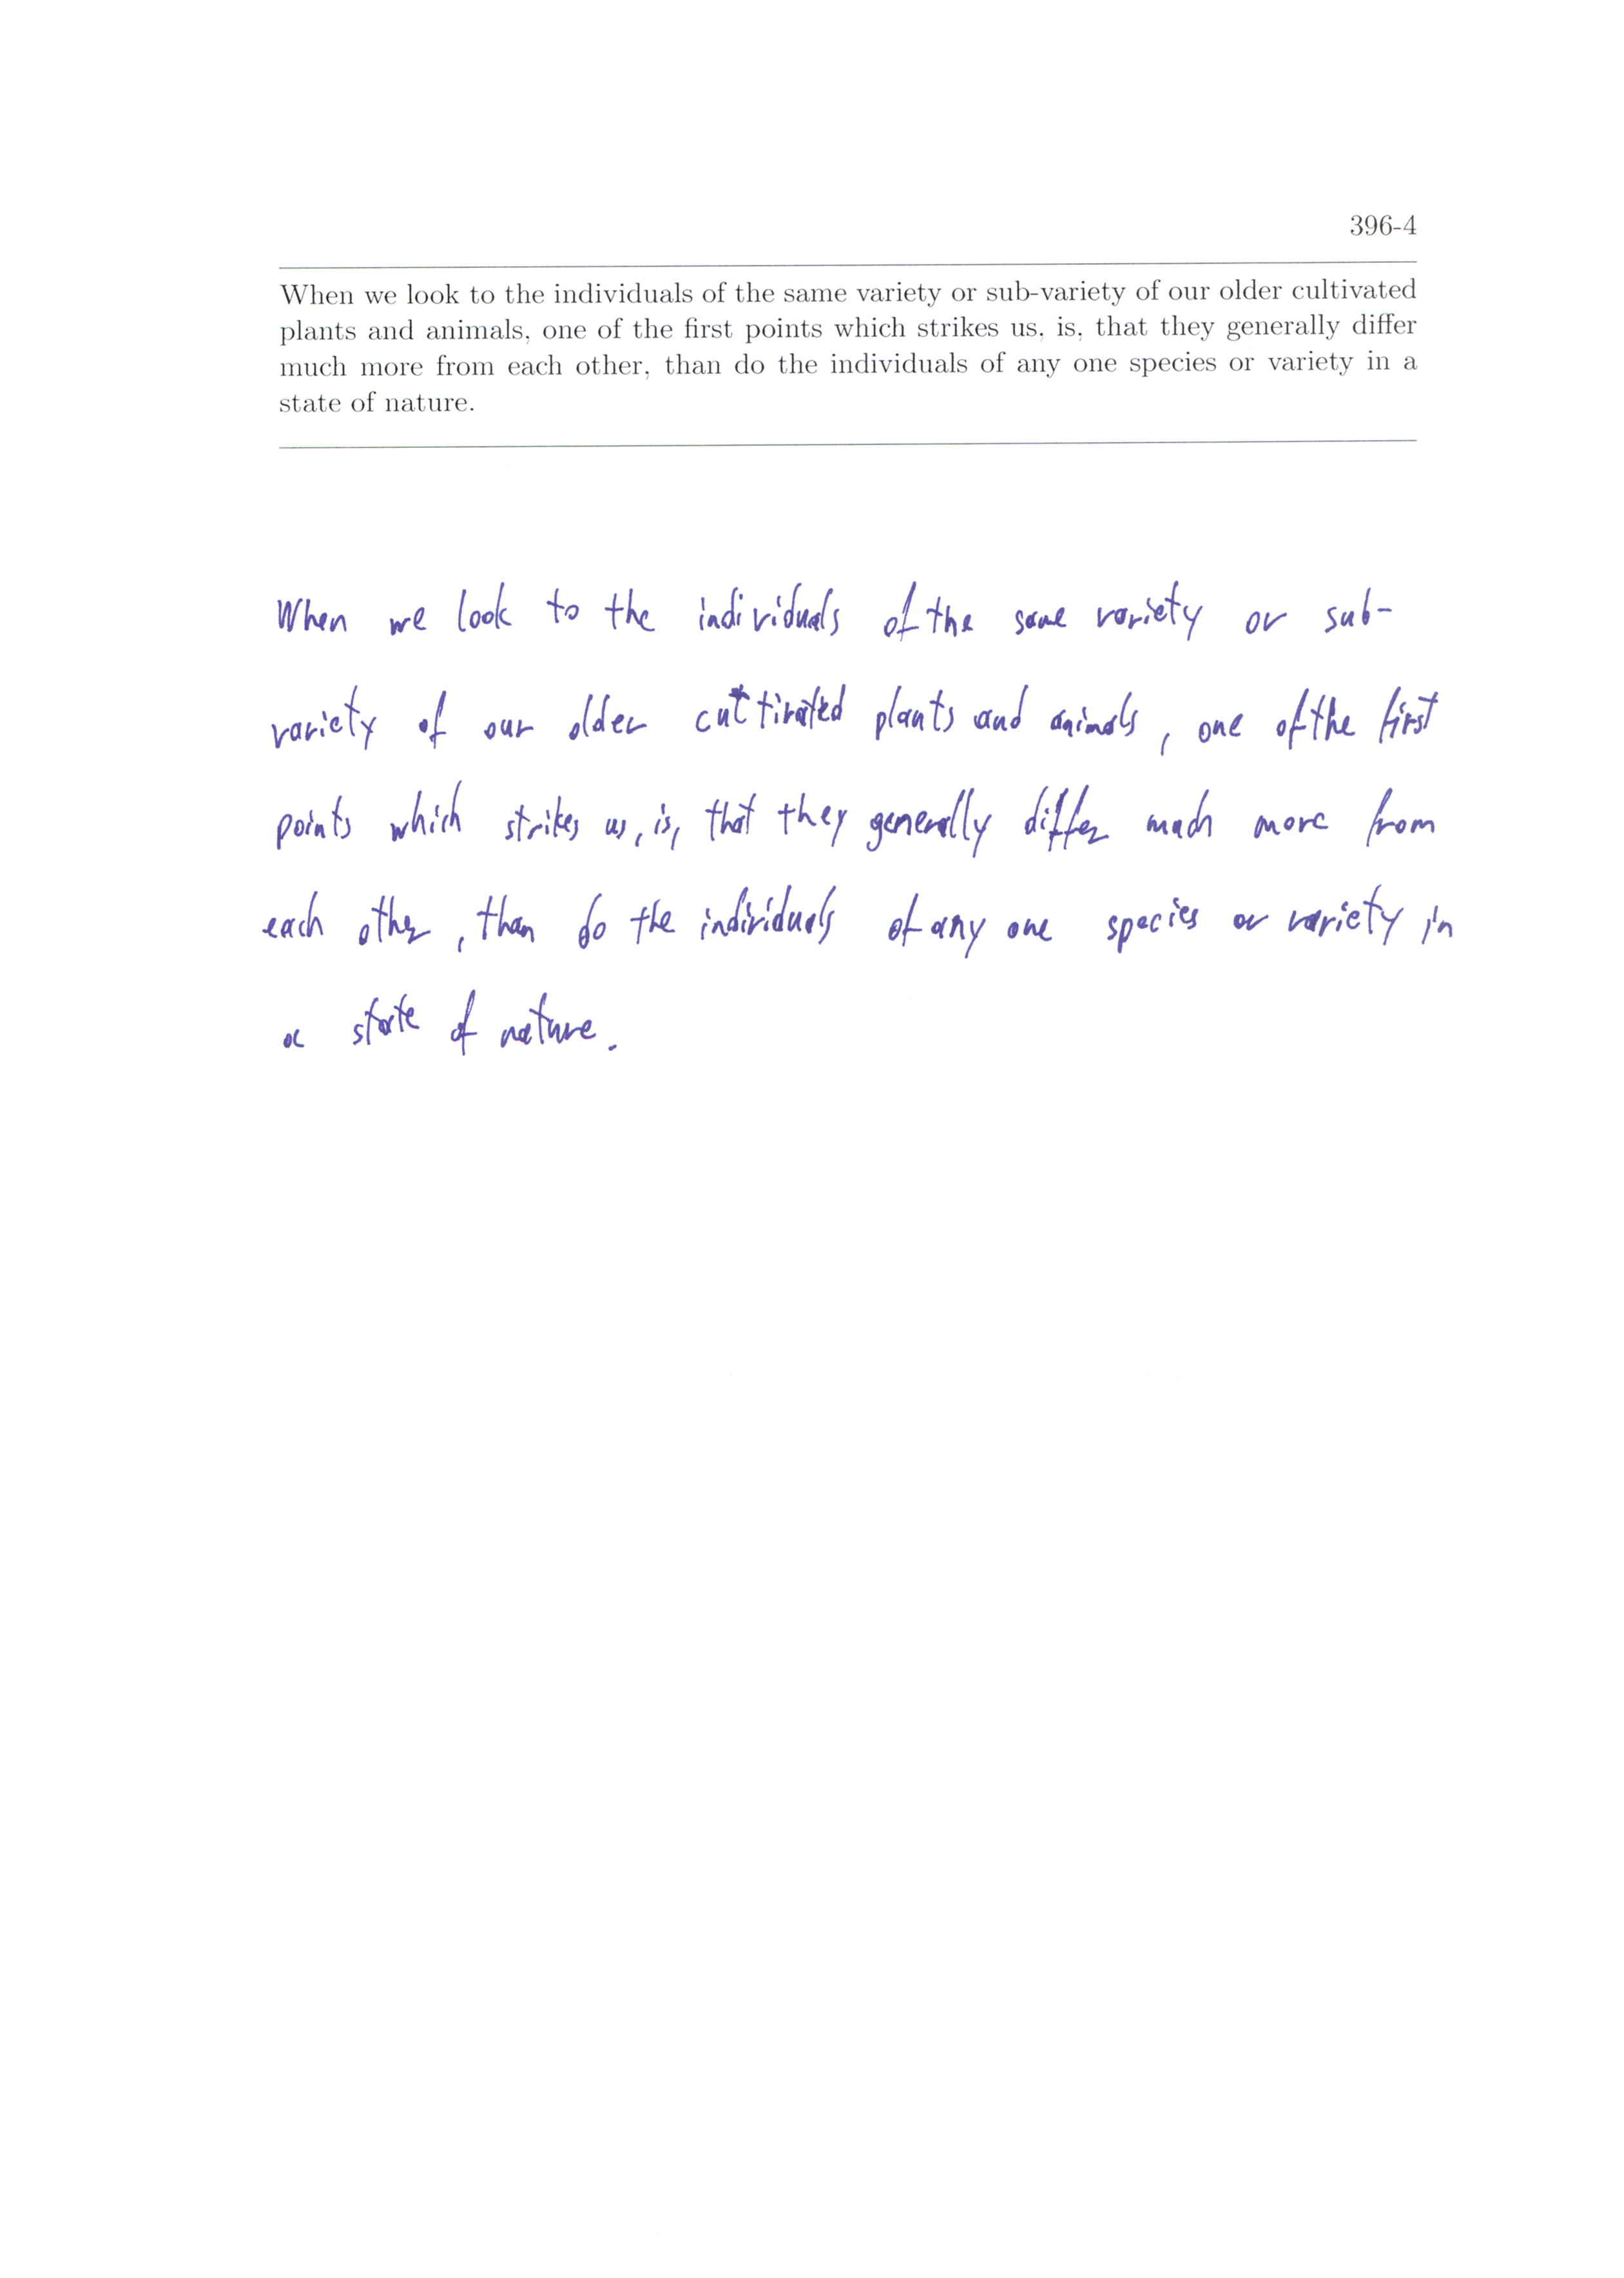 396-4
When we look to the individuals of the same variety or sub-variety of our older cultivated
plants and animals, one of the first points which strikes us, is, that they generally differ
much more from each other, than do the individuals of any one species or variety in a
state of nature.
When we look to the individuals of the same variety or sub-
variety of our older cultivated plants and animals, one of the first
points which strikes us, is, that they generally differ much more from
each other, than do the individuals of any one species or variety in
a state of nature.